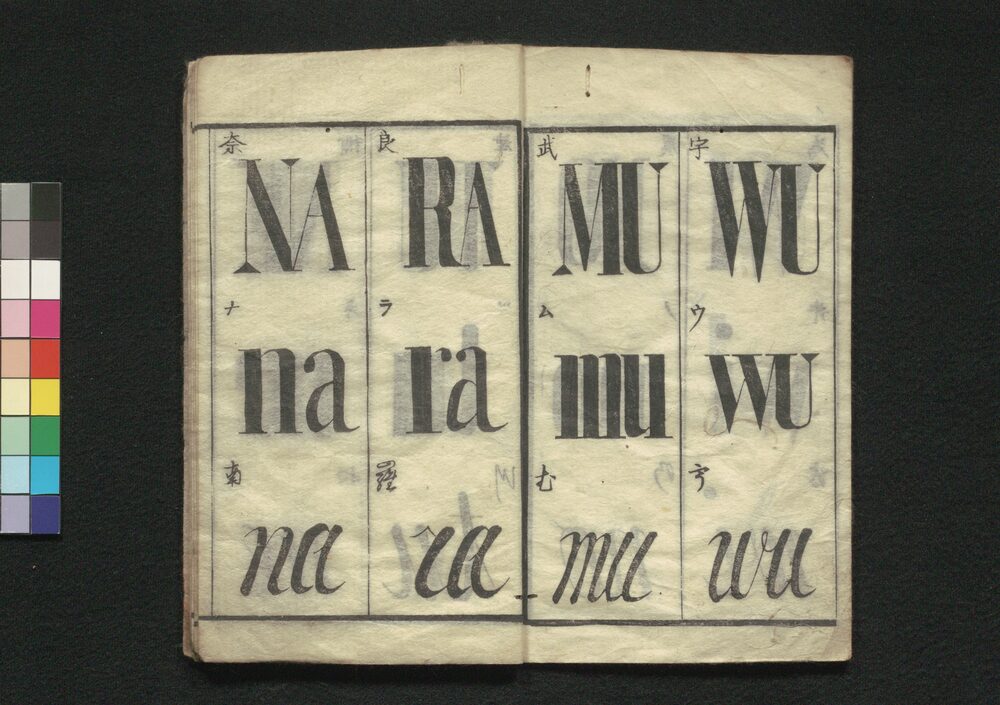 奈
NA
ナ
na
南
na
良
RA
ラ
ra
羅
ra
武
MU
ム
mu
む
mu
宇
WU
ウ
WU
wu